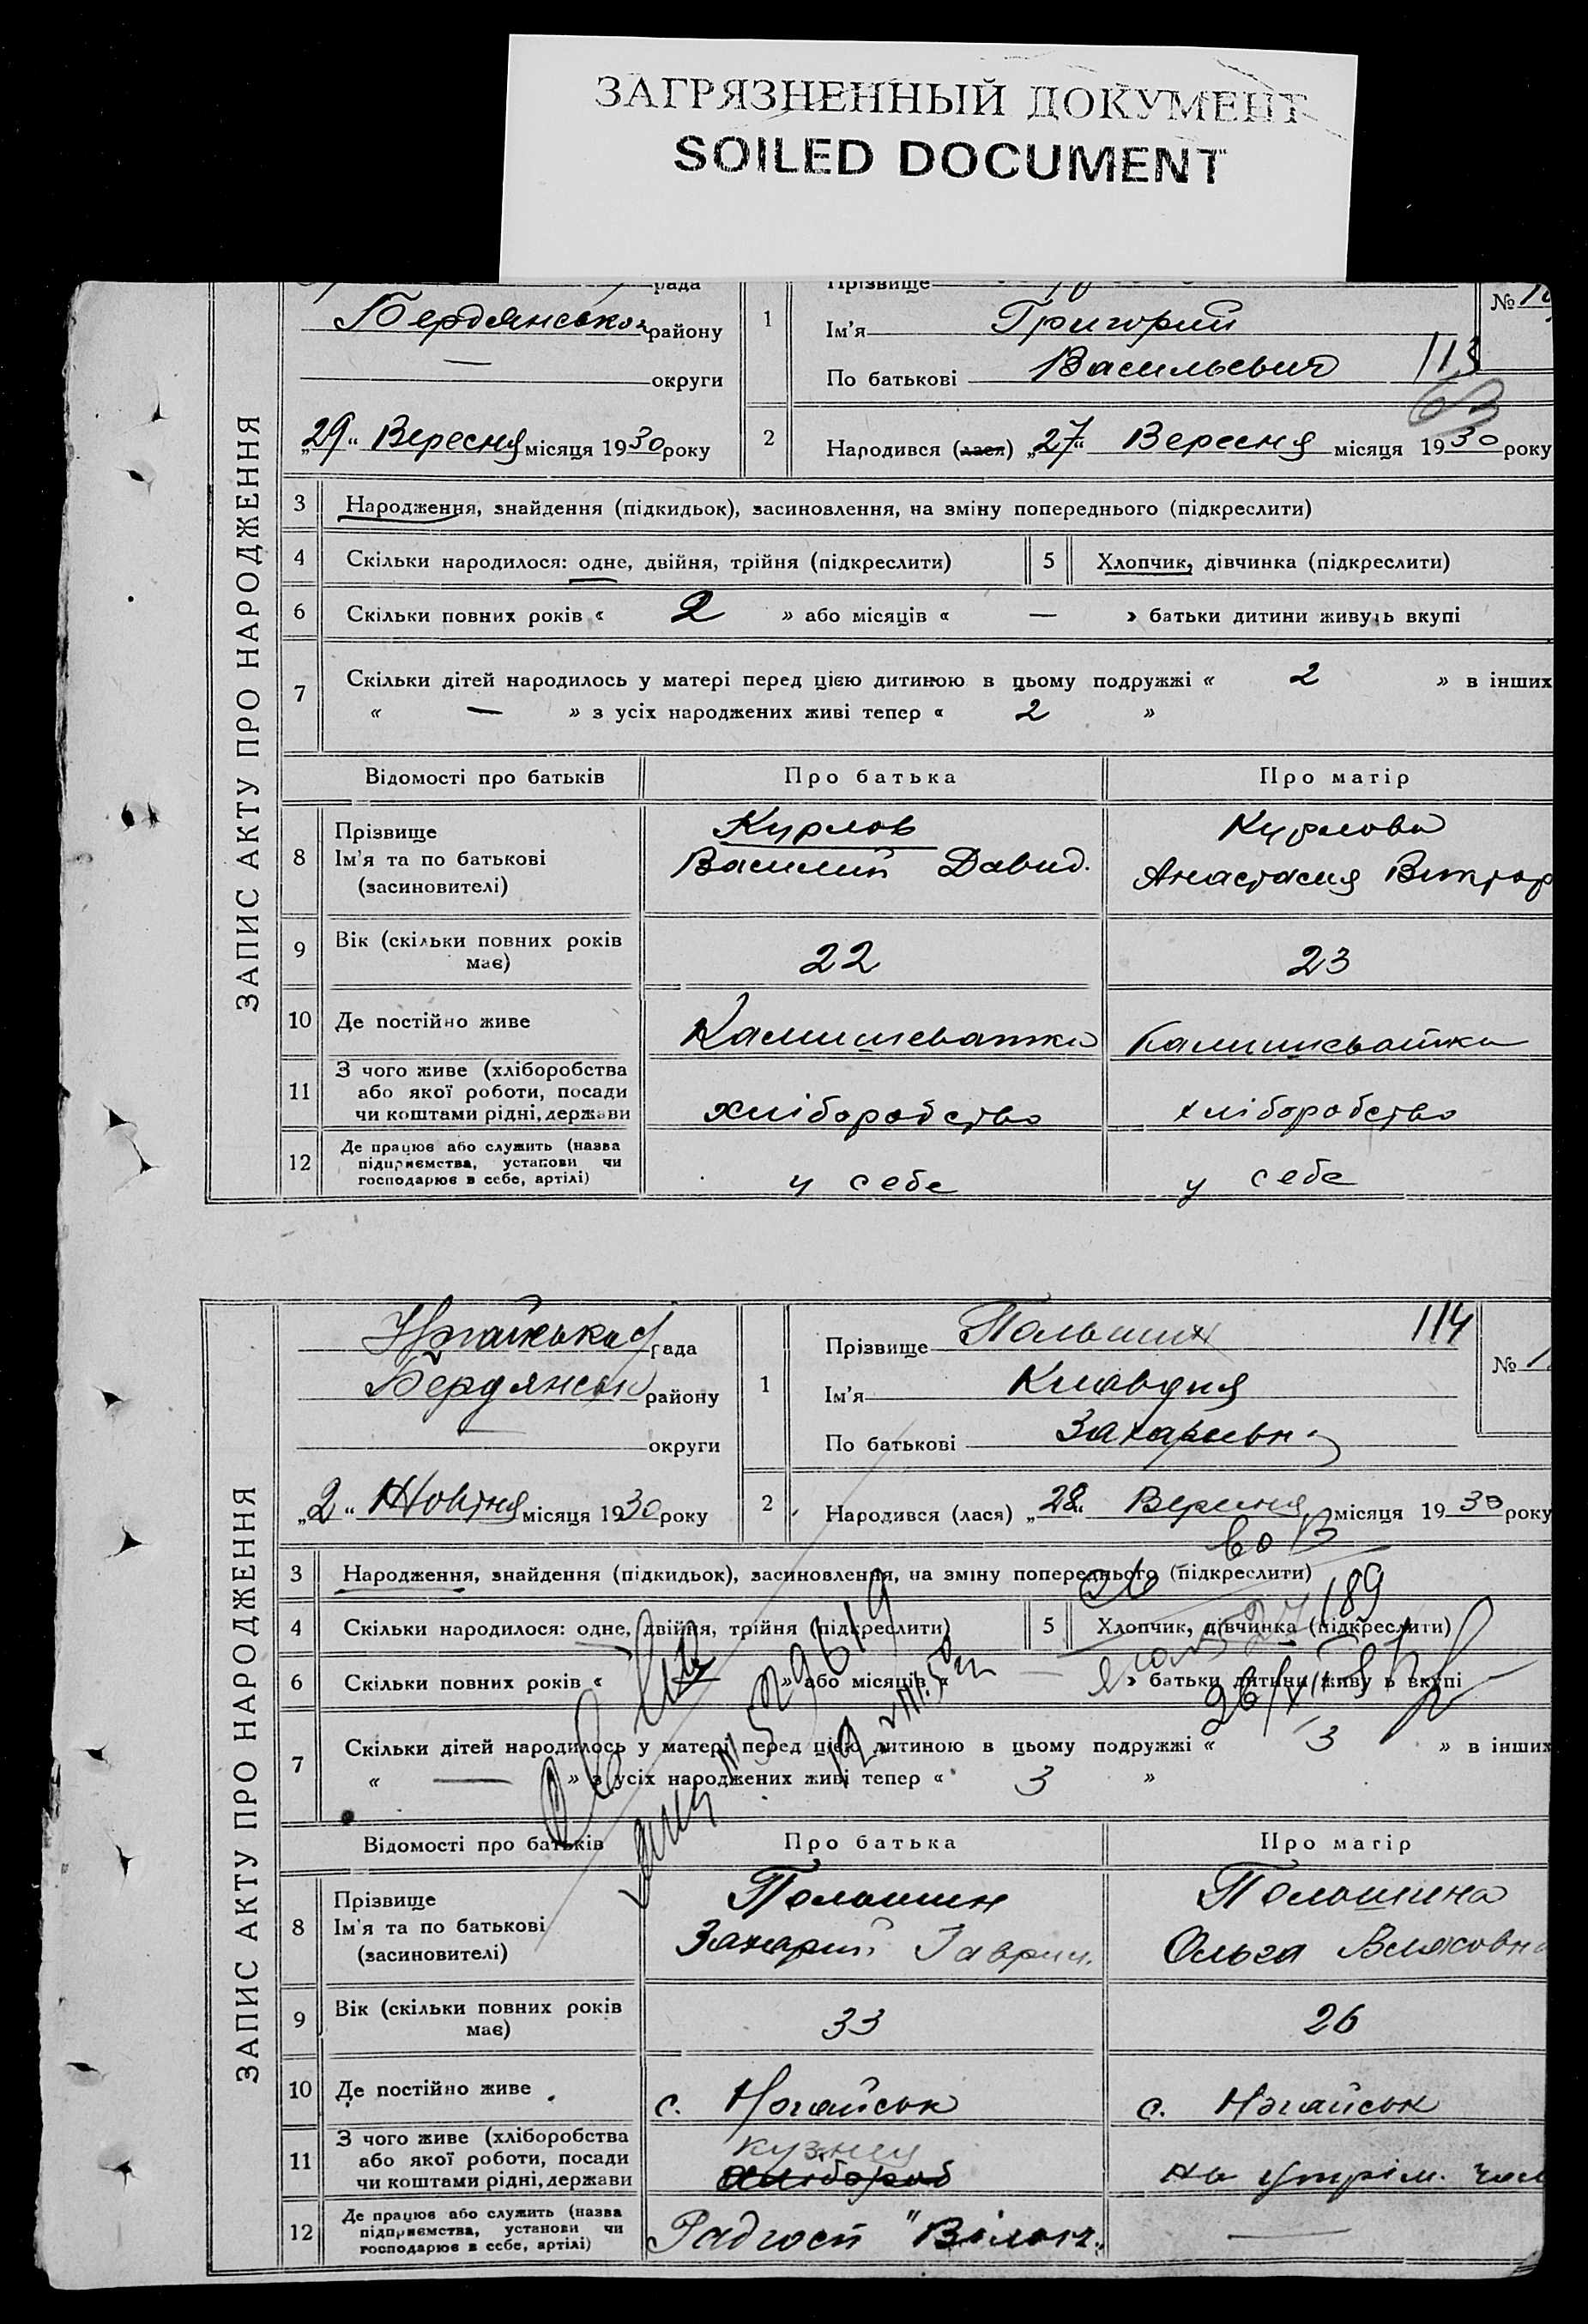 ЗАГРЯЗНЕННЫЙ ДОКУМЕНТ
SOILED DOCUMENT
ЗАПИС АКТУ ПРО НАРОДЖЕННЯ
рада
Бердянськоя району
— округи
„29“ Вересня місяця 1930 року
1 Прізвище
Ім'я Григорий
По батькові Васильевич
№
113
2 Народився (лася) „27“ Вересня місяця 1930 року
3 Народження, знайдення (підкидьок), засиновлення, на зміну попереднього (підкреслити)
4 Скільки народилося: одне, двійня, трійня (підкреслити) 5 Хлопчик, дівчинка (підкреслити)
6 Скільки повних років « 2 » або місяців « — » батьки дитини живуть вкупі
7 Скільки дітей народилось у матері перед цією дитиною в цьому подружжі « 2 » в інших
« — » з усіх народжених живі тепер « 2 »
Відомості про батьків Про батька Про матір
8 Прізвище Курлов Курлова
Ім'я та по батькові Василий Давид. Анастасия Виктор
(засиновителі)
9 Вік (скільки повних років має) 22 23
10 Де постійно живе Камишеватка Камишеватка
11 З чого живе (хліборобства
або якої роботи, посади
чи коштами рідні, держави хліборобство хліборобство
12 Де працює або служить (назва
підприємства, установи чи
господарює в себе, артілі) у себе у себе
ЗАПИС АКТУ ПРО НАРОДЖЕННЯ
рада
Бердянськ району
округи
„2“ Жовтня місяця 1930 року
1 Прізвище 114
Ім'я Клавдия
По батькові Захарьевн.
№
2 Народився (лася) „28“ Вересня місяця 1930 року
3 Народження, знайдення (підкидьок), засиновлення, на зміну попереднього (підкреслити)
189
4 Скільки народилося: одне, двійня, трійня (підкреслити) 5 Хлопчик, дівчинка (підкреслити)
6 Скільки повних років « » або місяців « — » батьки дитини живуть вкупі
7 Скільки дітей народилось у матері перед цією дитиною в цьому подружжі « 3 » в інших
« — » з усіх народжених живі тепер « 3 »
Відомості про батьків Про батька Про матір
8 Прізвище Польшин Польшина
Ім'я та по батькові Захарий Гаврил. Ольга Власовна
(засиновителі)
9 Вік (скільки повних років має) 33 26
10 Де постійно живе с. Ногайськ с. Ногайськ
11 З чого живе (хліборобства
або якої роботи, посади
чи коштами рідні, держави кузнец хлібороб на утрім. чол
12 Де працює або служить (назва
підприємства, установи чи
господарює в себе, артілі) Радгосп —